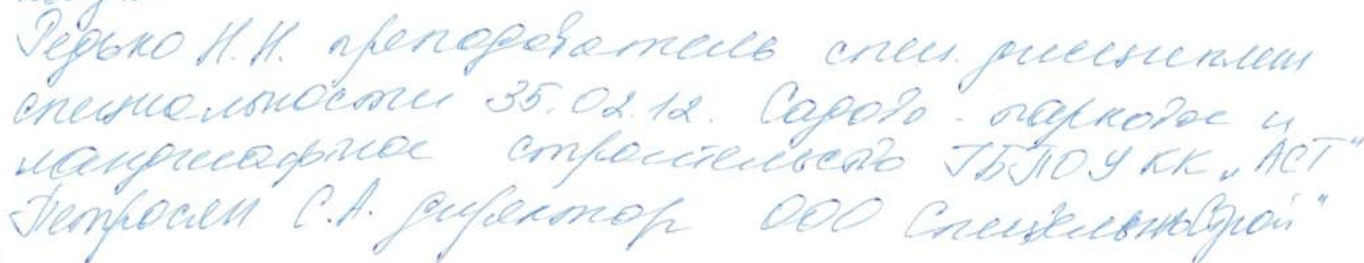 Редько Н.Н. преподаватель спец. дисциплин
специальности 35.02.12. Садово-парковое и
ландшафтное строительство ГБПОУ КК „АСТ"
Петросян С.А. директор ООО